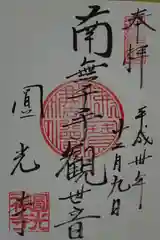 奉拝
平成卅年
十一月九日
南無千手観世音
圓光寺